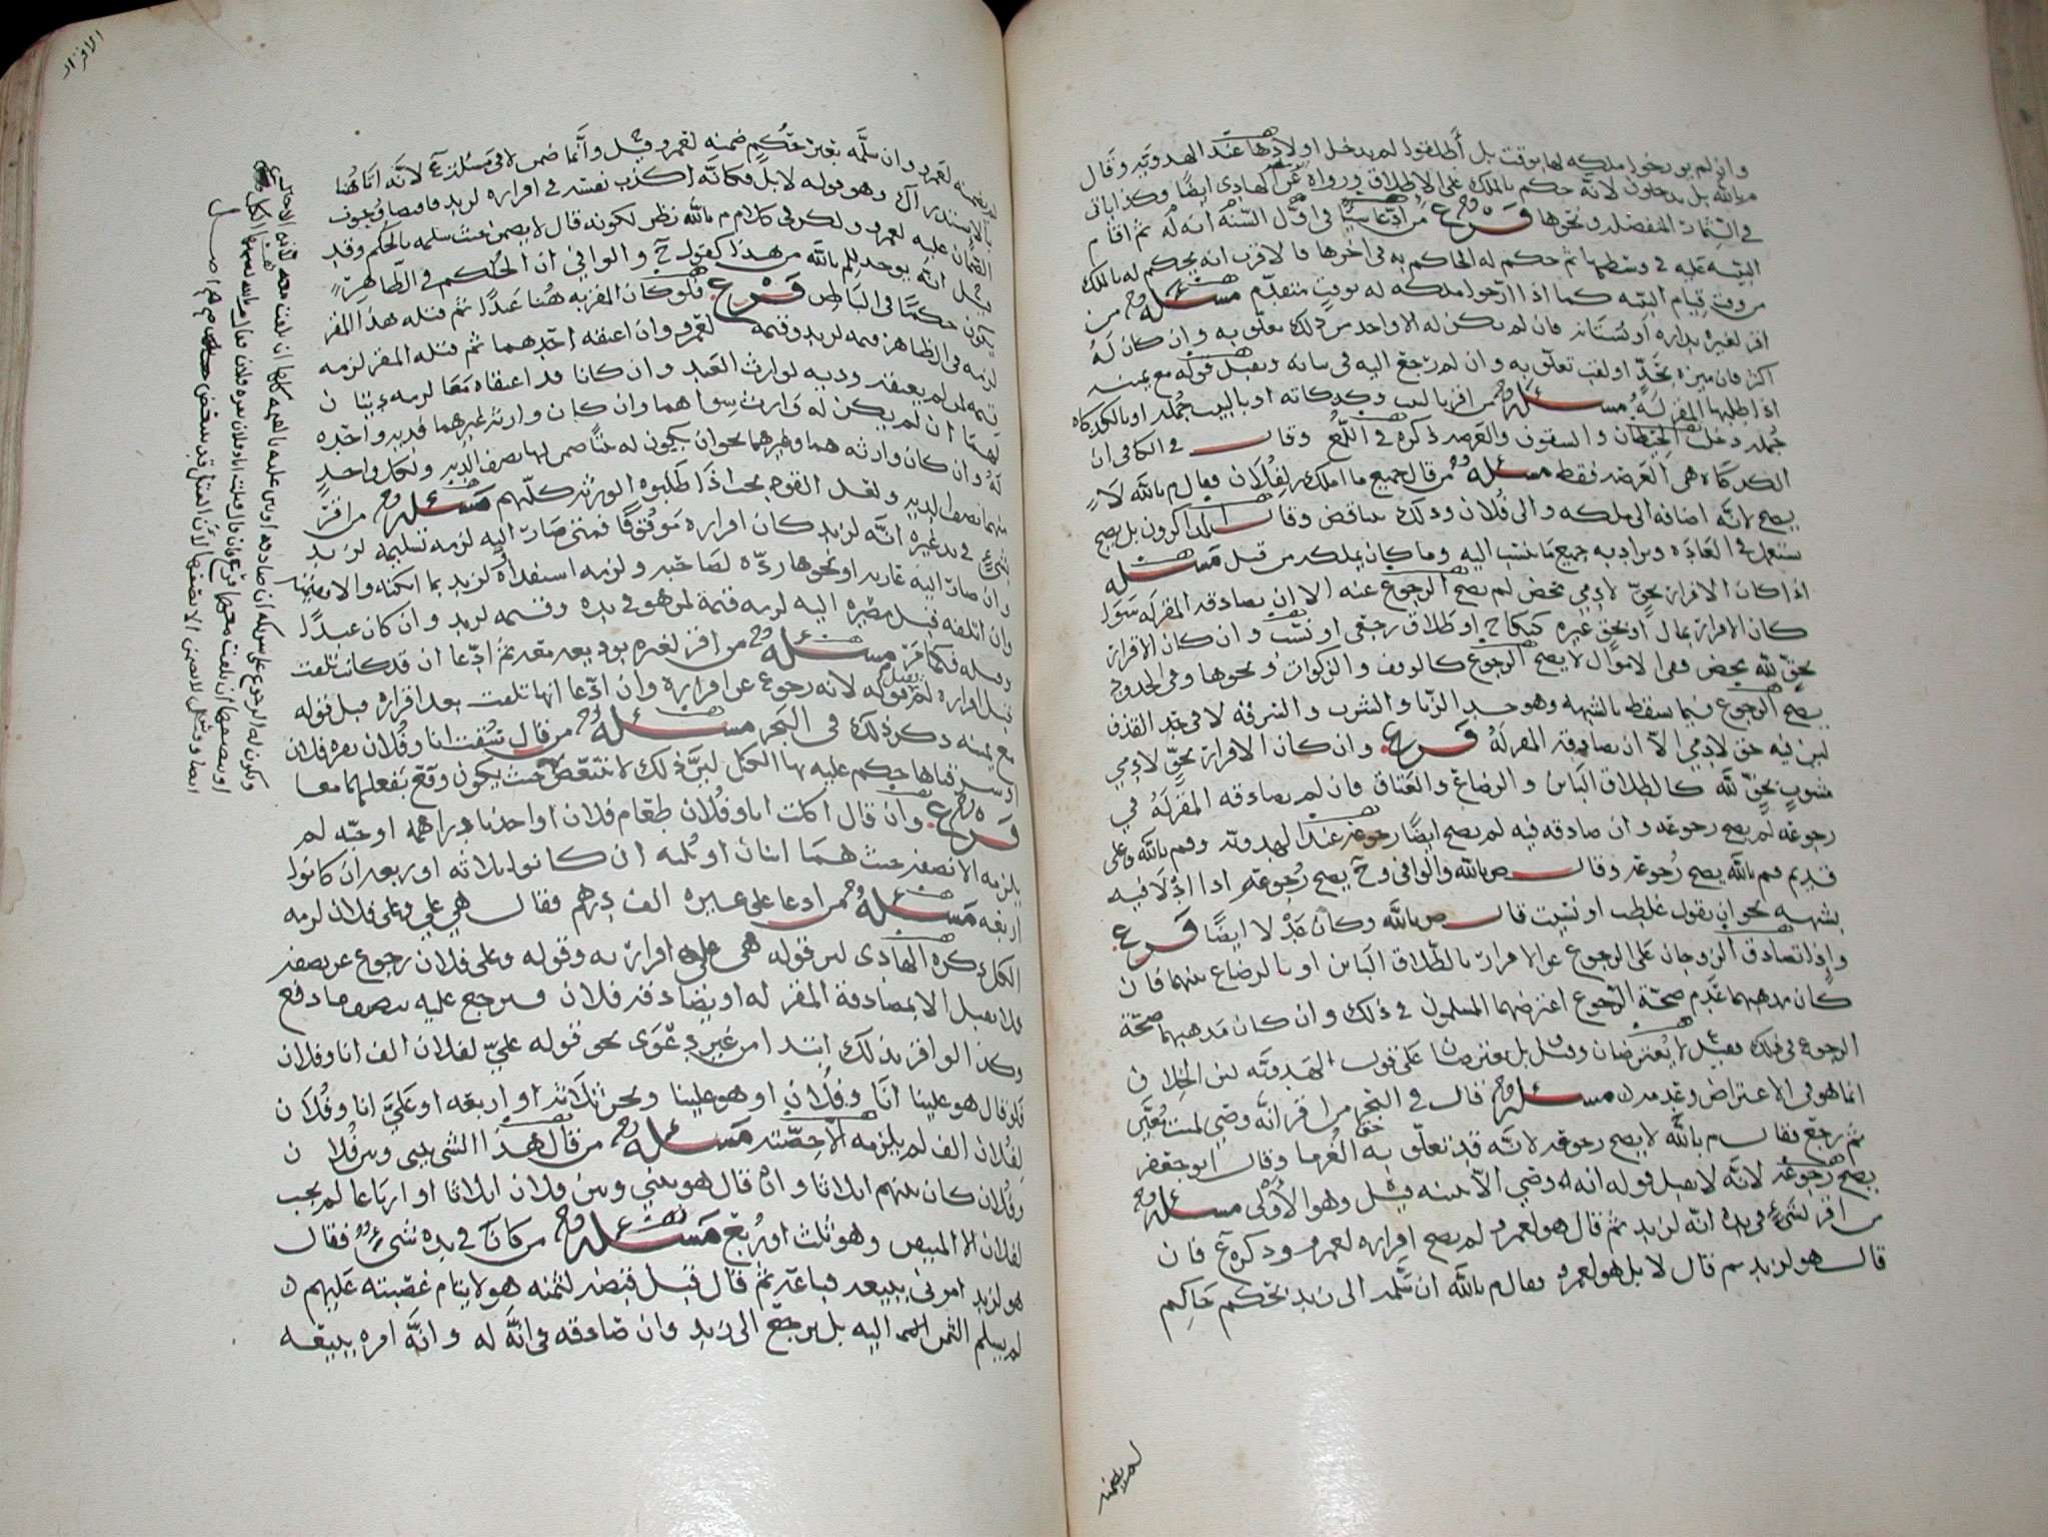 وان لم يورخوا ملكه لها بوقت بل أطلقوا لم يدخل اولادها عند الهدويه وقال
م بالله بل يدخلون لانه حكم بالملك على الاطلاق ورواه عن الهادي ايضا وكذا ياتي
في الثمار المنفصله ونحوها فرع من ادعا شيا في اول السنه انه له ثم اقام
البينه عليه في وسطها ثم حكم له الحاكم به في اخرها فالاقرب انه يحكم له بالملك
من وقت قيام البينه كما اذا ارخوا ملكه له بوقت متقدم مسئله من
اقر لغيره بداره او بستانه فان لم يكن له الا واحد من ذلك تعلق به وان كان له
اكثر فان ميزه بحد او لقب تعلق به وان لم رجع اليه في بيانه ويقبل قوله مع يمينه
اذا طلبها المقر له مسئله من اقر بالبيت وكدكانه او بالبيت جمله او بالكدكاه
جمله دخلت الحيطان والسقوف والعرصه ذكره في اللمع وقال في الكافي ان
الكدكاه هي العرصه فقط مسئله من قال جميع ما املك لفلان فقال م بالله لا
يصح لانه اضافه الى ملكه والى فلان وذلك يتناقض وقال المذاكرون بل يصح
يستعمل في العاده ويراد به جميع ما ينسب اليه وما كان يملكه من قبل مسئله
اذا كان الاقرار بحق لادمي محض لم يصح الرجوع عنه الا ان يصادقه المقر له سوى
كان الاقرار بمال او بحق غيره كنكاح او طلاق رجعي او نسب وان كان الاقرار
بحق لله محض ففي الاموال لا يصح الرجوع كالوقف والزكوات ونحوها وفي الحدود
يصح الرجوع فيما سقط بالشبهه وهو حد الزنا والشرب والسرقه لا في حد القذف
لان فيه حق لادمي الا ان يصادقه المقر له فرع وان كان الاقرار بحق لادمي
مشوب بحق لله كالطلاق البائن والرضاع والعتاق فان لم يصادقه المقر له في
رجوعه لم يصح رجوعه وان صادقه فيه لم يصح ايضا رجوعه عند الهدويه وقم بالله وعلى
قديم قم بالله يصح رجوعه وقال ص بالله والوافي وح يصح رجوعه اذا ادلا فيه
بشبهه نحو ان يقول غلطت او نسيت قال ص بالله وكان عبد لا ايضا فرع
واذا تصادق الزوجان على الرجوع عن الاقرار بالطلاق البائن او بالرضاع بينهما فان
كان مذهبهما عدم صحة الرجوع اعترضهما المسلمون في ذلك وان كان مذهبهما صحة
الرجوع في ذلك فقيل لا يعترضان وقيل بل يعترضان على قول الهدويه لان الخلاف
انما هو في الاعتراض وقد مر ذلك مسئله قال في البحر من اقر انه وصي لميت معين
ثم رجع فقال م بالله لا يصح رجوعه لانه قد تعلق به حق الغرما وقال ابو جعفر
يصح رجوعه لانه لا يقبل قوله انه وصي الا ببينه قيل وهو الاولى مسئله
من اقر لشيء في يده انه لزيد ثم قال هو لعمرو لم يصح اقراره لعمرو وذكره ع فان
قال هو لزيد ثم قال لا بل هو لعمرو فقال م بالله ان سلمه الى زيد بحكم حاكم
لم يضمنه
الاقرار
لم يضمنه لعمرو وان سلمه بغير حكم ضمنه لعمرو قيل وانما ضمن لا في مسئلة ع لانه اتا هنا
بالاستدراك وهو قوله لا بل فكانه اكذب نفسه في اقراره لزيد
الضمان عليه لعمرو ولكن في كلام م بالله نظر لكونه قال لا يضمن حيث سلمه بالحكم وقد
قيل انه يوخذ للم بالله من هذا كقول ح والوافي ان الحكم في الظاهر
يكون حكما في الباطن فرع فلو كان المقر به هنا عبدا ثم قتله هذا المقر
لزمه في الظاهر قيمه لزيد وقيمه لعمرو وان اعتقه احدهما ثم قتله المقر لزمه
قيمه لمن لم يعتقه وديه لوارث العبد وان كانا قد اعتقاه معا لزمه ديتان
لهما ان لم يكن له وارث سواهما وان كان وارثه غيرهما فديه واحده
له وان كان وارثه هما وغيرهما نحو ان يكون له بنتا ضمن لها نصف الديه ولكل واحد
منهما نصف الديه ولعل الفقيه بحث اذا طلبوه الورثه كلهم مسئله من اقر
بشيء في يد غيره انه لزيد كان اقراره موقوفا فمتى صار اليه لزمه تسليمه لزيد
وان صار اليه عاريه او نحوها رده لصاحبه ولزمه استفداه لزيد بما امكنه والا قيمته
وان اتلفه قبل مصيره اليه لزمه قيمة لمن هو في يده وقيمه لزيد وان كان عبدا
وقتله فكما مر مسئله من اقر لغيره بوديعه معه ثم ادعا ان قد كانت تلفت
قبل اقراره لم يقبل قوله لانه رجوع عن اقراره وان ادعا انها تلفت بعد اقراره قبل قوله
مع يمينه ذكر ذلك في البحر مسئله من قال نسفت انا وفلان بقره فلان
او سرقناها حكم عليه بها الكل لان ذلك لا يتبعض حيث يكون وقع بفعلهما معا
فرع وان قال اكلت انا وفلان طعام فلان او اخذنا دراهمه او حبه لم
يلزمه الا نصفه حيث هما اثنان او ثلثه ان كانوا ثلاثه او ربعه ان كانوا
اربعه مسئله من ادعا على غيره الف درهم فقال هي علي وعلى فلان لزمه
الكل ذكره الهادي لان قوله هي علي اقرار به وقوله وعلى فلان رجوع عن نصفه
فلا يقبل الا بمصادقة المقر له او يصادقه فلان فيرجع عليه بنصف ما دفع
وكذا لو اقر بذلك ابتدا من غير دعوى نحو قوله علي لفلان الف انا وفلان
فلو قال هو علينا انا وفلان او هو علينا ونحن ثلاثه او اربعه او علي انا وفلان
لفلان الف لم يلزمه الا حصته مسئله من قال هذا الشي بيني وبين فلان
وفلان كان بينهم اثلاثا وان قال هو بيني وبين فلان اثلاثا او ارباعا لم يجب
لفلان الا المبين وهو ثلث او ربع مسئله من كان في يده شيء فقال
هو لزيد امرني ببيعه فباعه ثم قال قبل قبضه لثمنه هو لايتام غصبته عليهم
لم يسلم الثمن اليه بل يرجع الى زيد وان صادقه في انه له وانه امره ببيعه